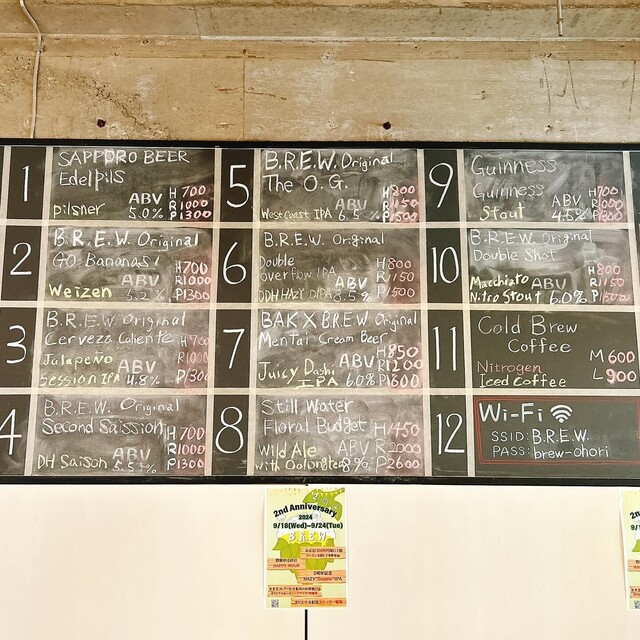 1
SAPPORO BEER
Edelpils
Pilsner
ABV 5.0%
H 700
R 1000
P 1300
2
B.R.E.W. Original
GO Bananas!
Weizen
ABV 5.2%
H 700
R 1000
P 1300
3
B.R.E.W. Original
Cerveza Caliente
Jalapeño
Session IPA
ABV 4.8%
H 700
R 1000
P 1300
4
B.R.E.W. Original
Second Saission
DH Saison
ABV 5.5%
H 700
R 1000
P 1300
5
B.R.E.W. Original
The O.G.
West Coast IPA
ABV 6.5%
H 800
R 1150
P 1500
6
B.R.E.W. Original
Double
overflow IPA
DDH HAZY DIPA
ABV 8.5%
H 800
R 1150
P 1500
7
BAK X B.R.E.W. Original
Mental Cream Beer
Juicy Dashi
IPA
ABV 6.0%
H 850
R 1200
P 1600
8
Still Water
Floral Budget
Wild Ale
with Oolongtea
ABV
H 1450
R 2000
P 2600
9
Guinness
Guinness
Stout
ABV 4.5%
H 700
R 1000
P 1300
10
B.R.E.W. Original
Double Shot
Macchiato
Nitro Stout
ABV 6.0%
H 800
R 1150
P 1500
11
Cold Brew
Coffee
Nitrogen
Iced Coffee
M 600
L 900
12
Wi-Fi
SSID: B.R.E.W.
PASS: brew-ohori
2nd Anniversary
2024
9/18(Wed)~9/24(Tue)
BREW
HAPPY HOUR